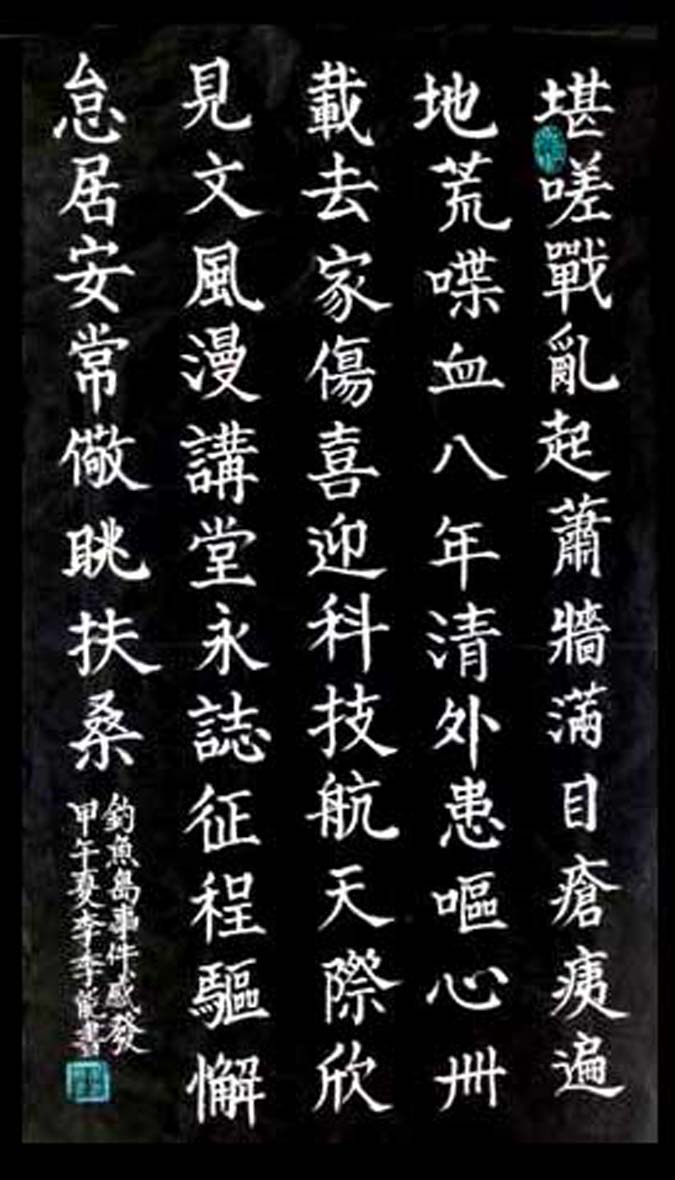 堪嗟戰亂起蕭牆滿目瘡痍遍
地荒喋血八年清外患嘔心卅
載去家傷喜迎科技航天際欣
見文風漫講堂永誌征程驅懈
怠居安常儆眺扶桑
釣魚島事件感發
甲午夏李書